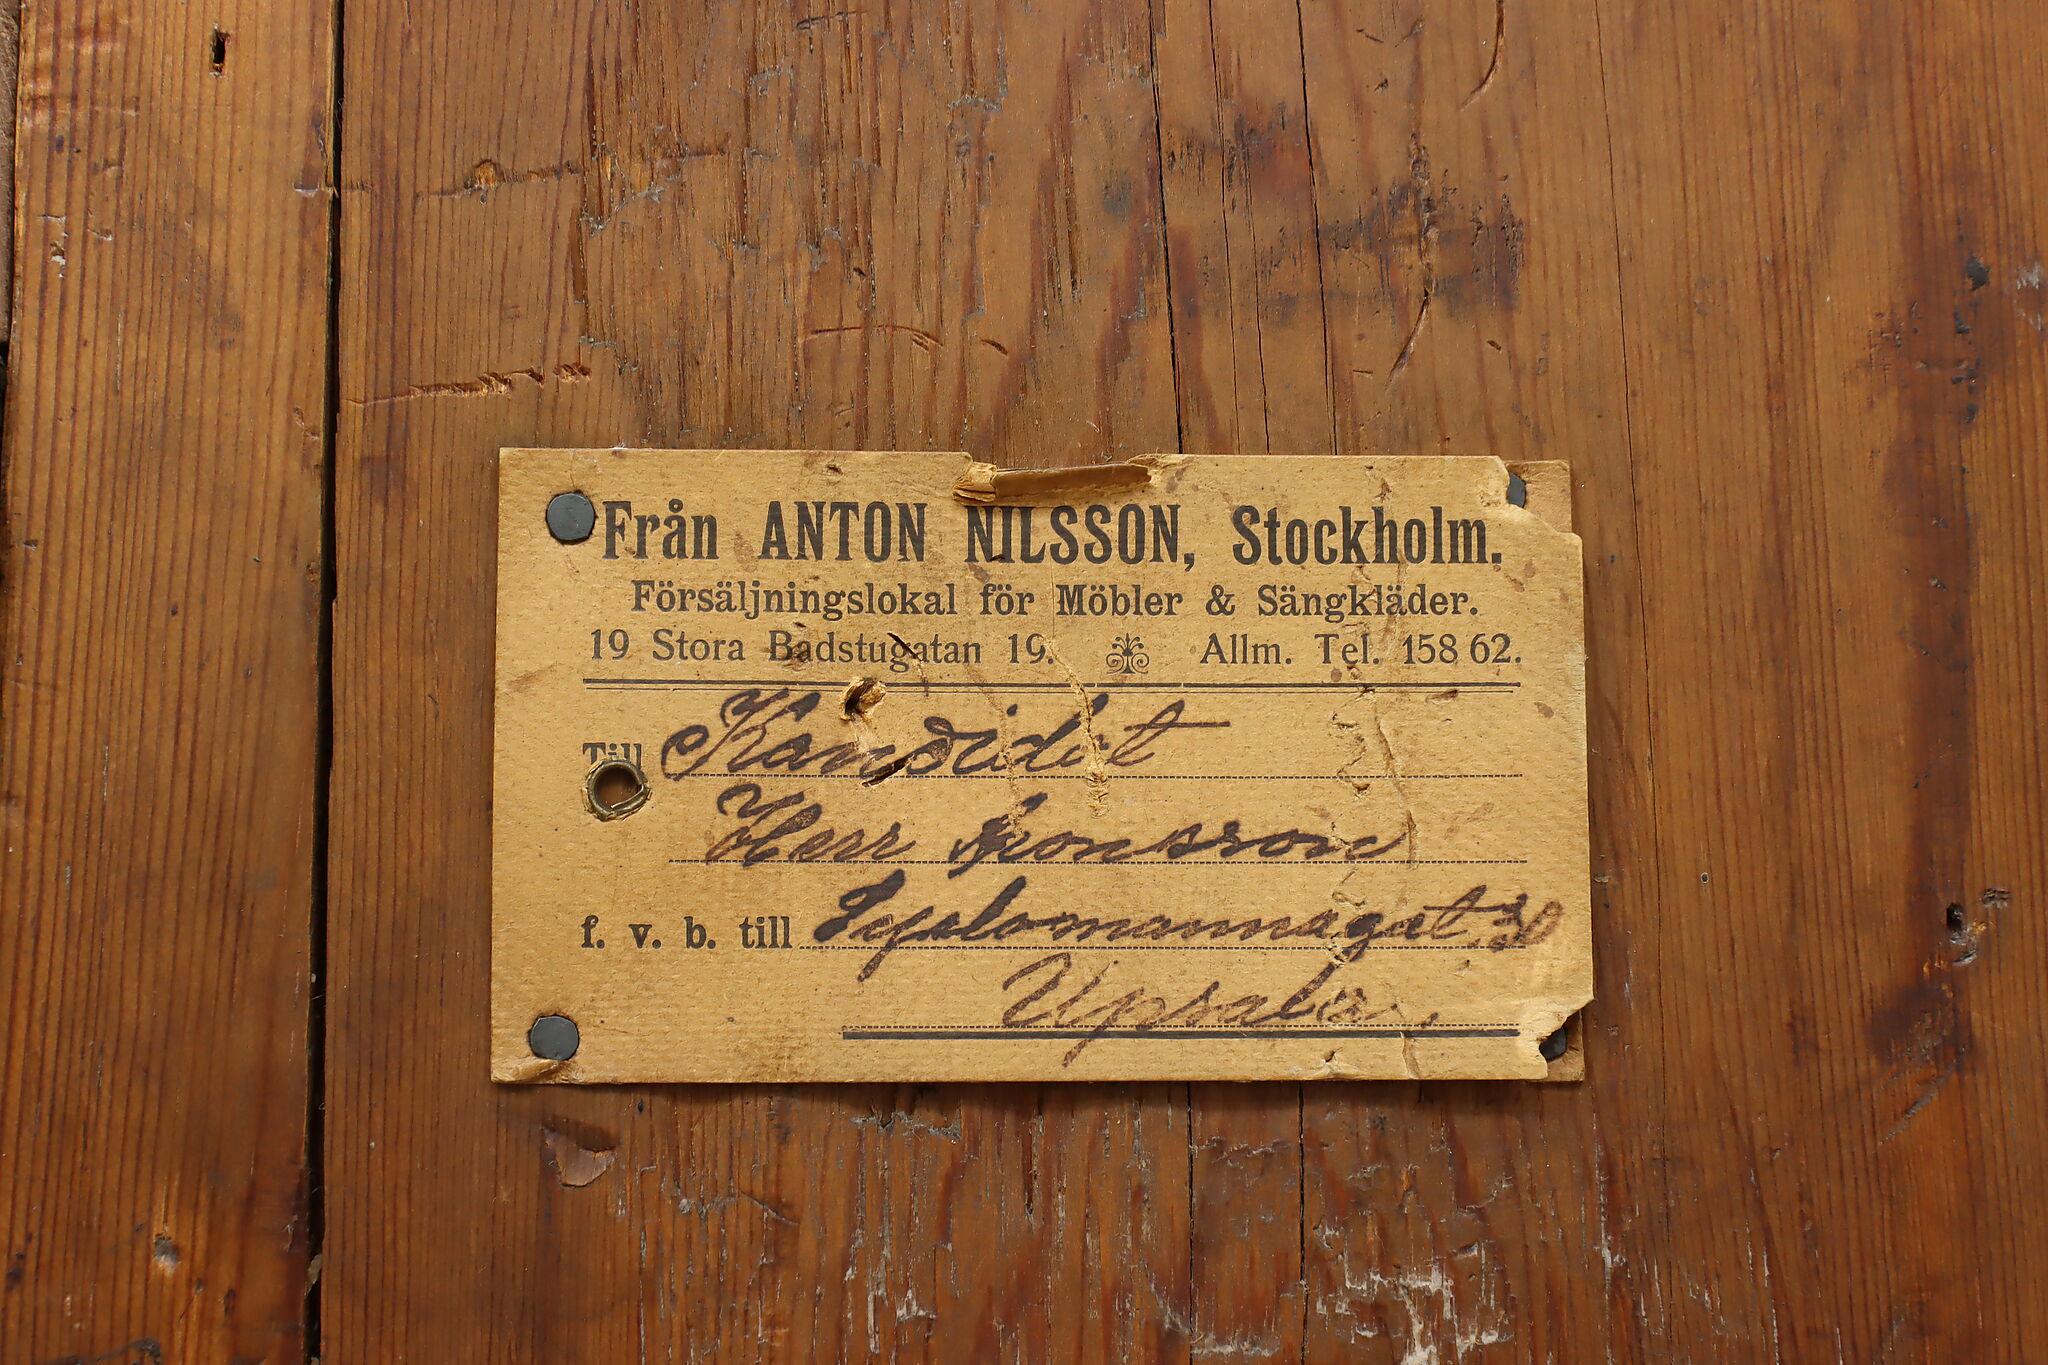 Från ANTON NILSSON, Stockholm.
Försäljningslokal för Möbler & Sängkläder.
19 Stora Badstugatan 19. Allm. Tel. 158 62.
Till Kandidat
Herr
f. v. b. till 30
Upsala.